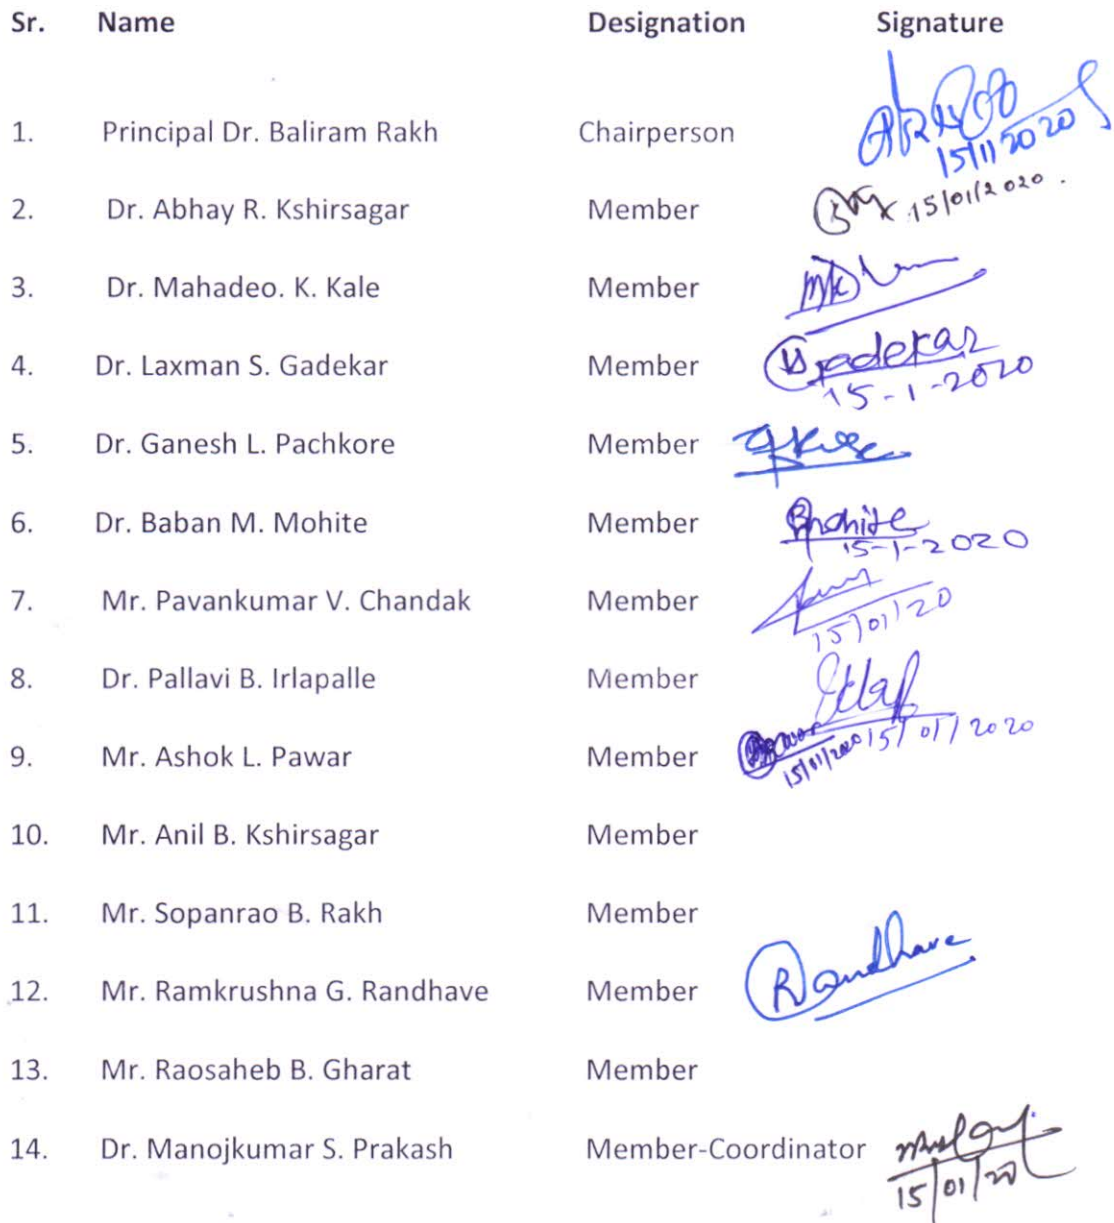 Sr. Name Designation Signature
1. Principal Dr. Baliram Rakh Chairperson
15/1/2020
2. Dr. Abhay R. Kshirsagar Member 15/01/2020.
3. Dr. Mahadeo. K. Kale Member
4. Dr. Laxman S. Gadekar Member Gadekar
15-1-2020
5. Dr. Ganesh L. Pachkore Member
6. Dr. Baban M. Mohite Member Bmohite
15-1-2020
7. Mr. Pavankumar V. Chandak Member
15/01/20
8. Dr. Pallavi B. Irlapalle Member
15/01/2020
9. Mr. Ashok L. Pawar Member
15/01/2020
10. Mr. Anil B. Kshirsagar Member
11. Mr. Sopanrao B. Rakh Member
12. Mr. Ramkrushna G. Randhave Member Randhave
13. Mr. Raosaheb B. Gharat Member
14. Dr. Manojkumar S. Prakash Member-Coordinator
15/01/20